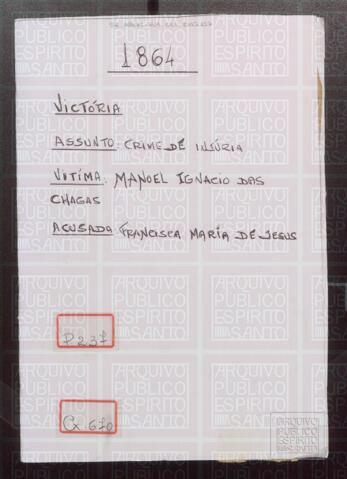 1864
VICTÓRIA
ASSUNTO: CRIME DE INJÚRIA
VÍTIMA: MANOEL IGNACIO DAS
CHAGAS
ACUSADA: FRANCISCA MARÍA DE JESUS
P 237
Cx 670
ARQUIVO
PÚBLICO
ESPÍRITO
SANTO